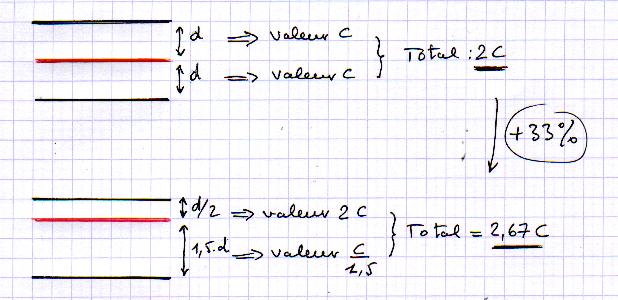 d => valeur C
d => valeur C
Total : 2 C
+33%
d/2 => valeur 2 C
1,5.d => valeur C/1,5
Total = 2,67 C